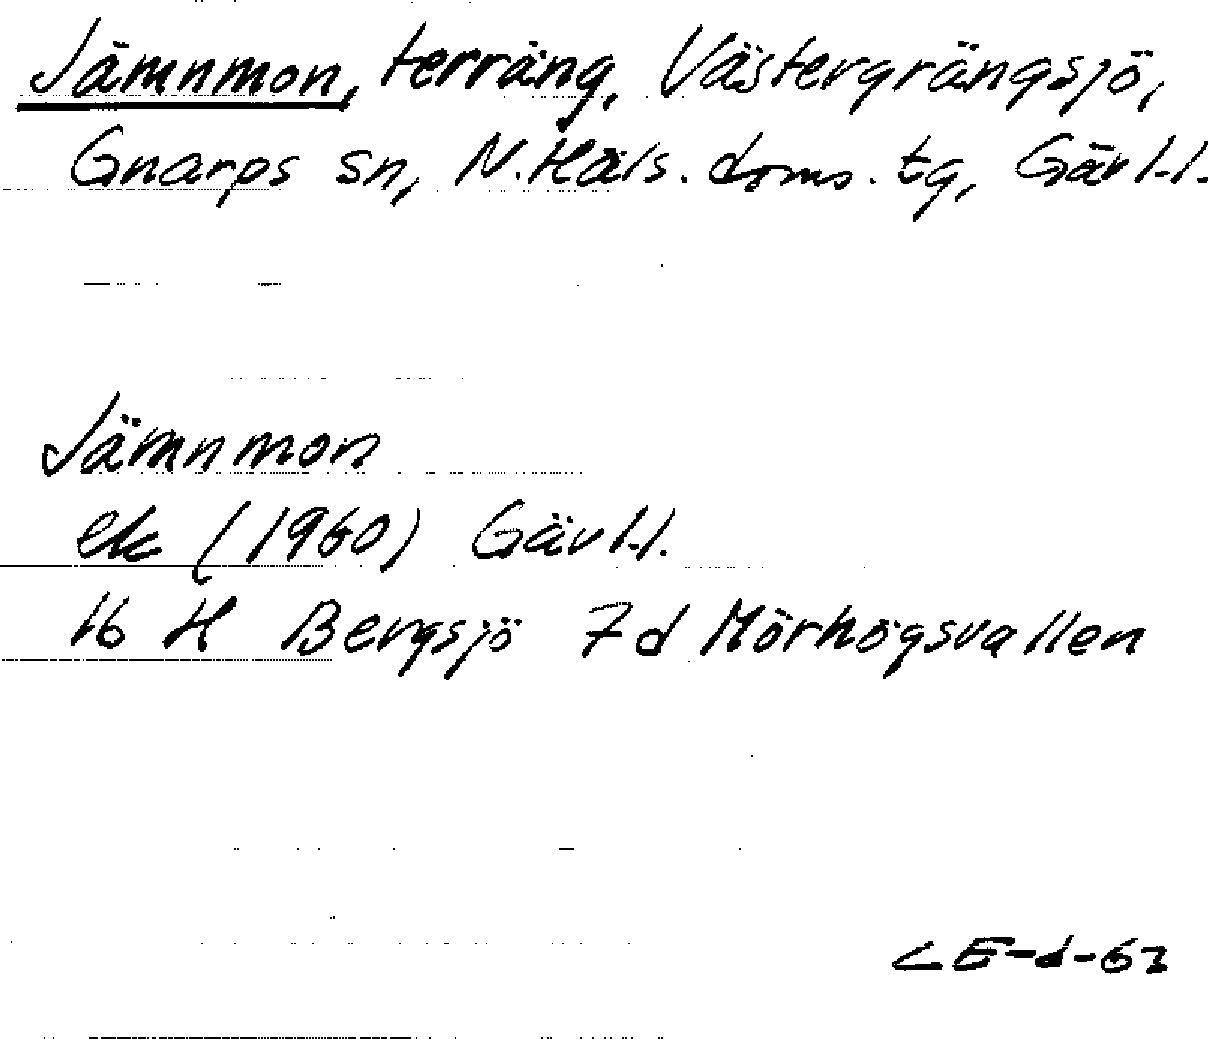 Jämnmon, terräng, Västergrängsjö,
Gnarps sn, N. Häls. doms. tg, Gävl.l.
Jämnmon
ek (1960) Gävl.l.
16 H Bergsjö 7d Mörhögsvallen